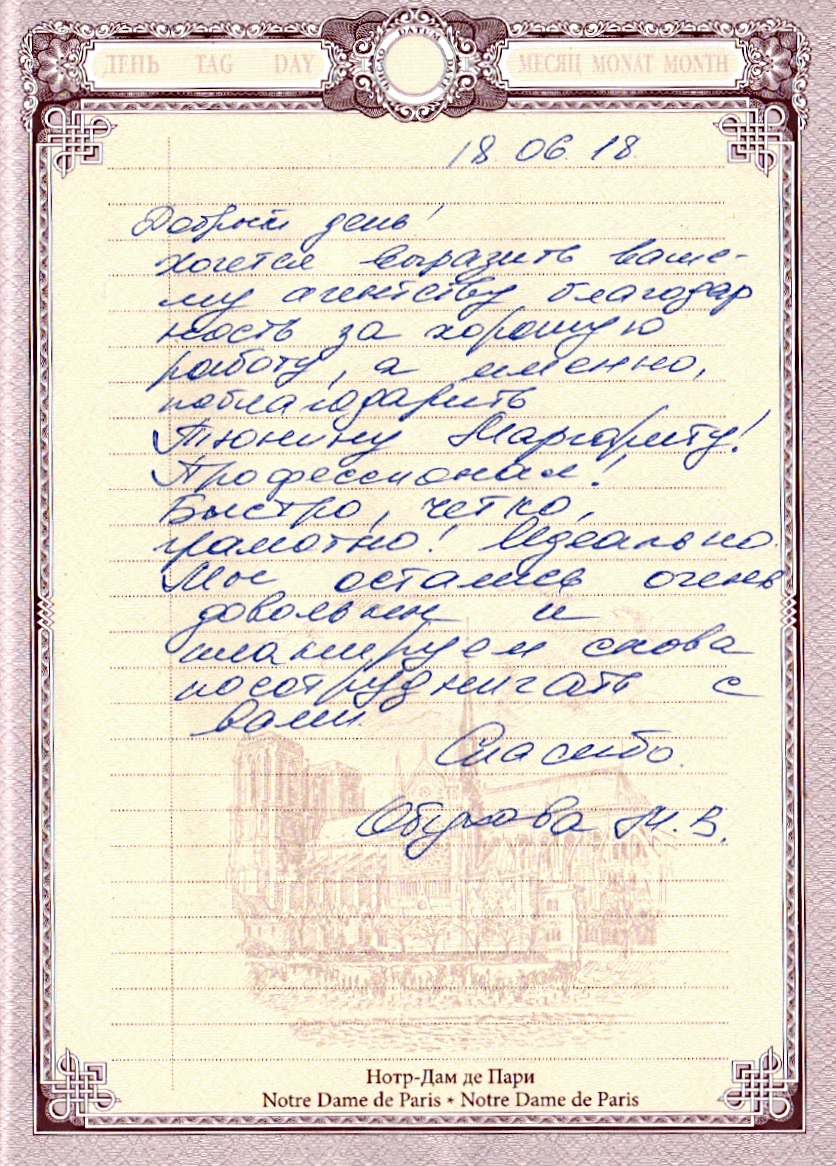 ДЕНЬ TAG DAY
ЧИСЛО DATUM DATE
МЕСЯЦ MONAT MONTH
18. 06. 18.
Добрый день!
Хочется выразить ваше-
му агентству благодар
ность за хорошую
работу, а именно,
поблагодарить
Тюнину Маргариту!
Профессионал!
Быстро, четко,
грамотно! Идеально.
Мы остались очень
довольны и
планируем снова
посотрудничать с
вами.
Спасибо.
Обухова М.В.
Нотр-Дам де Пари
Notre Dame de Paris • Notre Dame de Paris